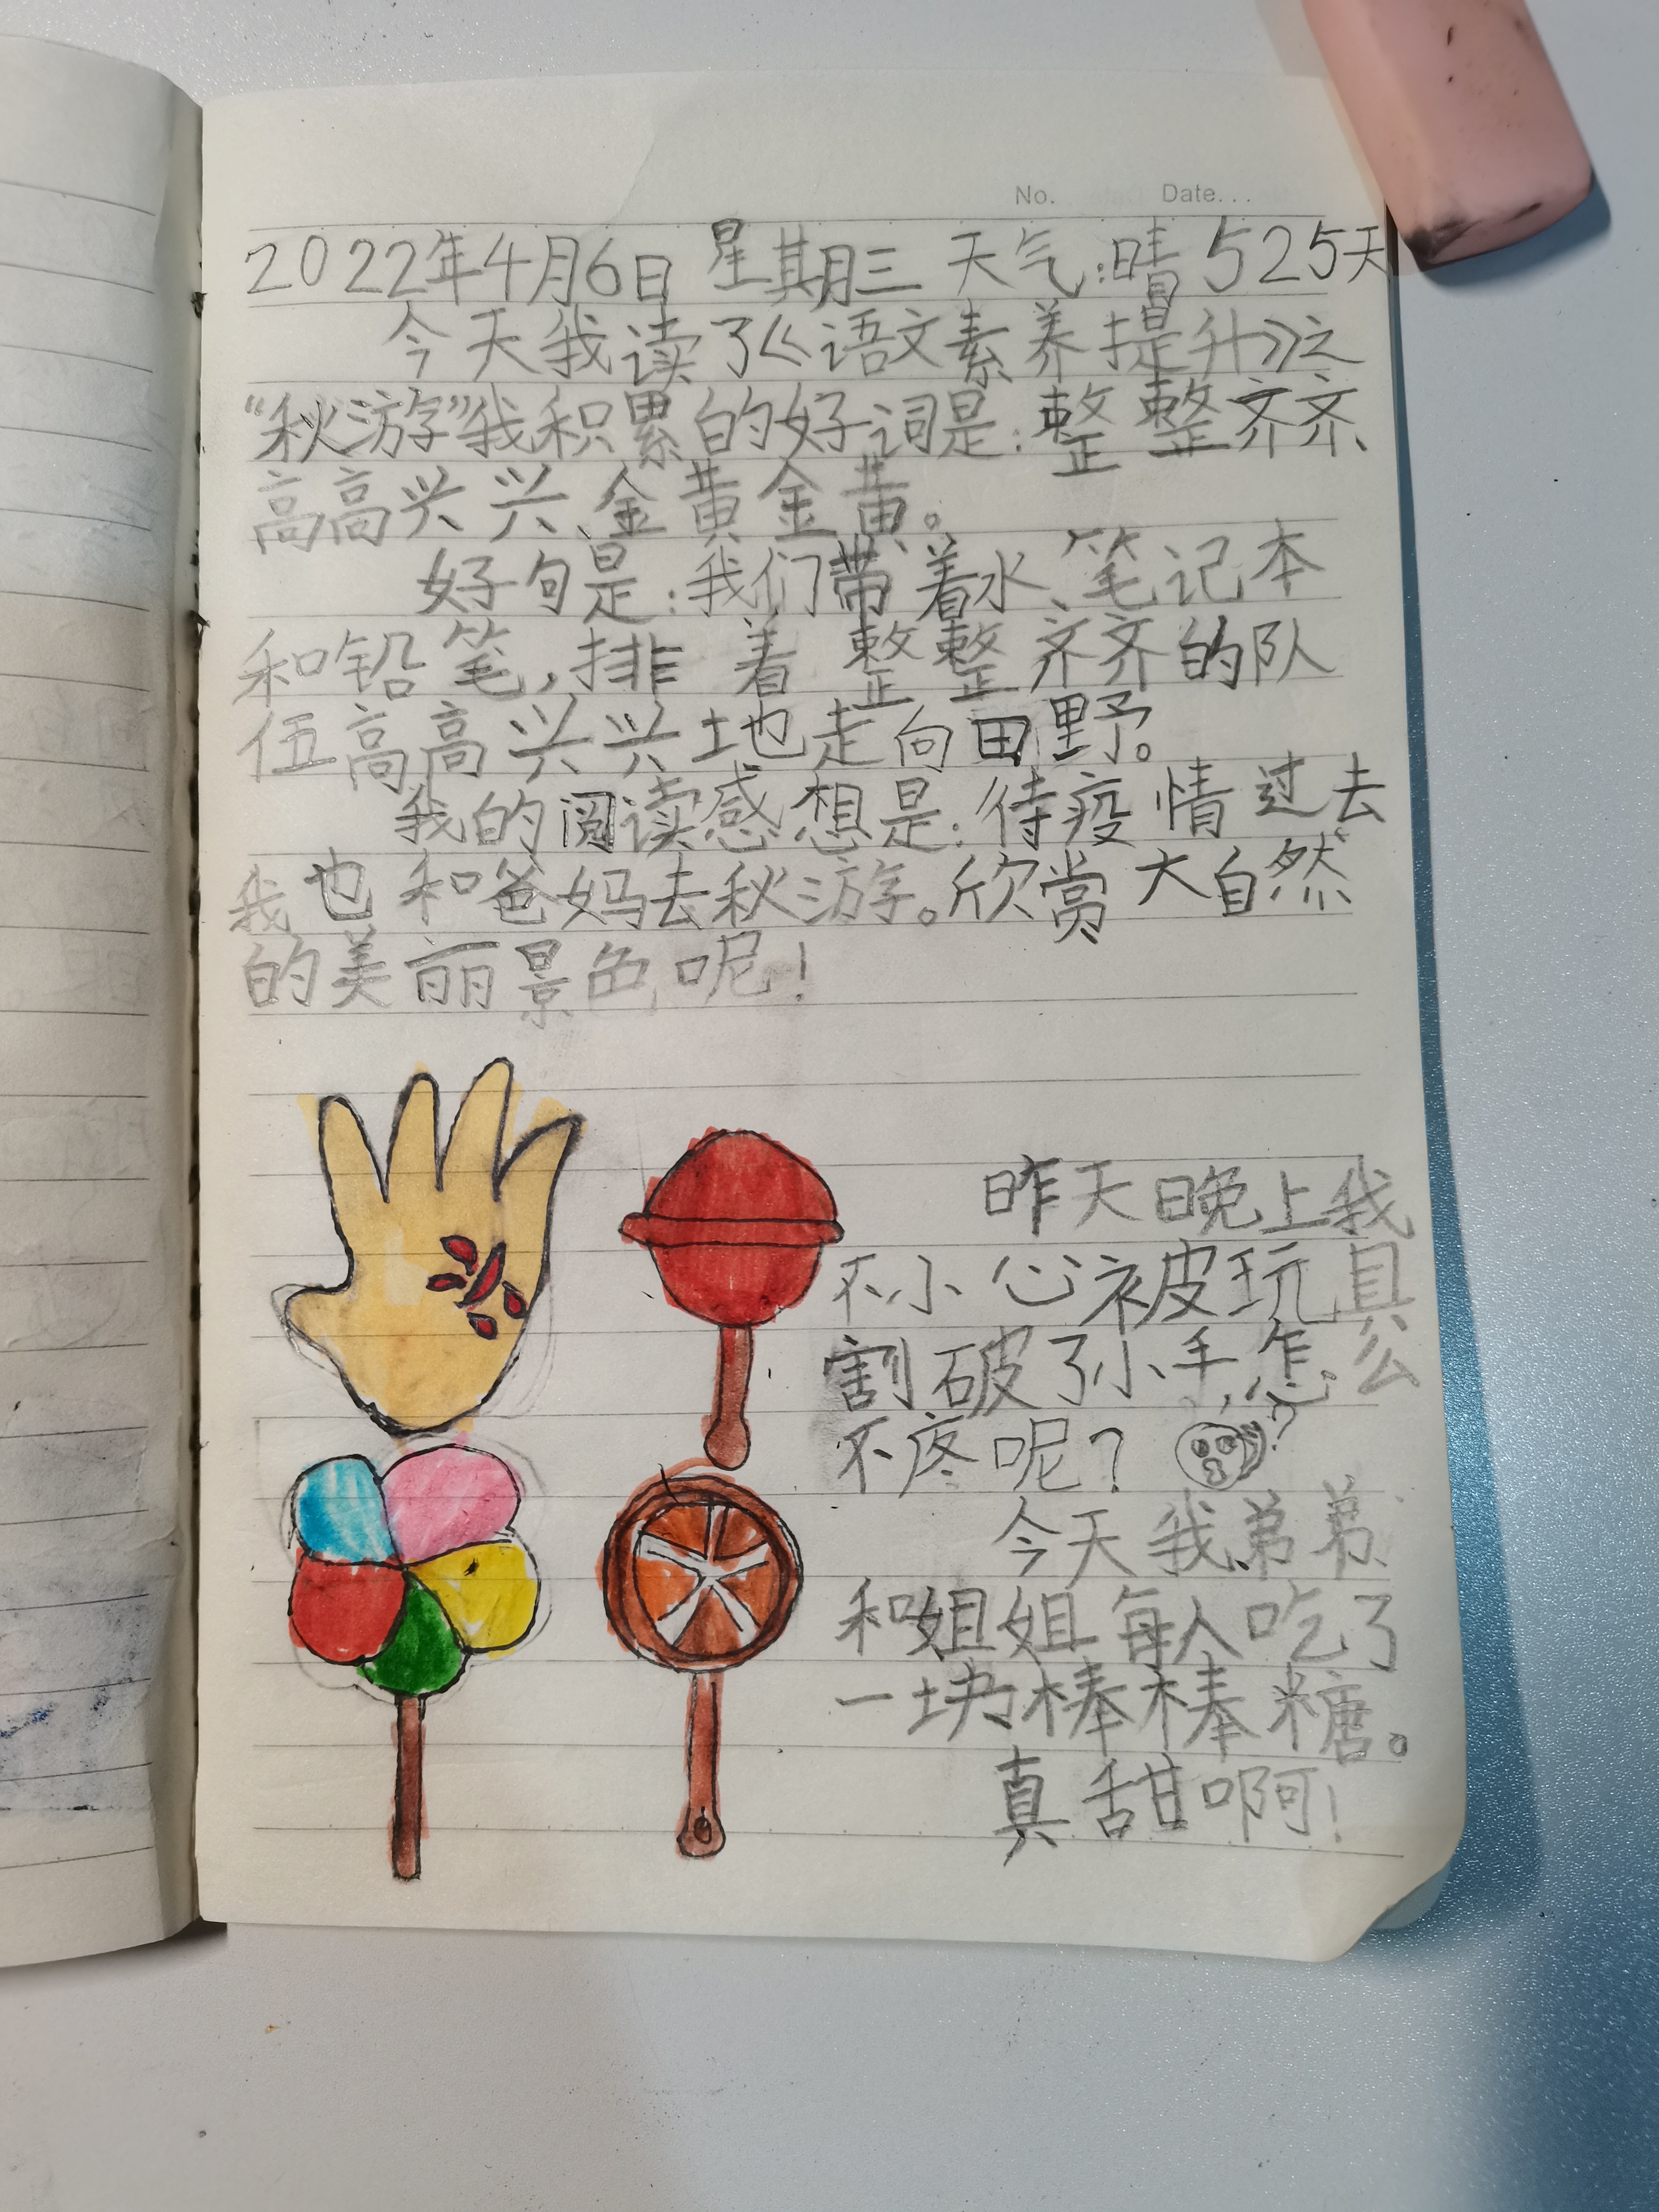 No. Date...
2022年4月6日 星期三 天气:晴 525天
今天我读了《语文素养提升》之
“秋游”我积累的好词是:整整齐齐、
高高兴兴、金黄金黄。
好句是:我们带着水、笔记本
和铅笔,排着整整齐齐的队
伍高高兴兴地走向田野。
我的阅读感想是:待疫情过去
我也和爸妈去秋游。欣赏大自然
的美丽景色呢!
昨天晚上我
不小心被玩具
割破了小手,怎么
不疼呢?
?
今天我弟弟
和姐姐每人吃了
一块棒棒糖。
真甜啊!